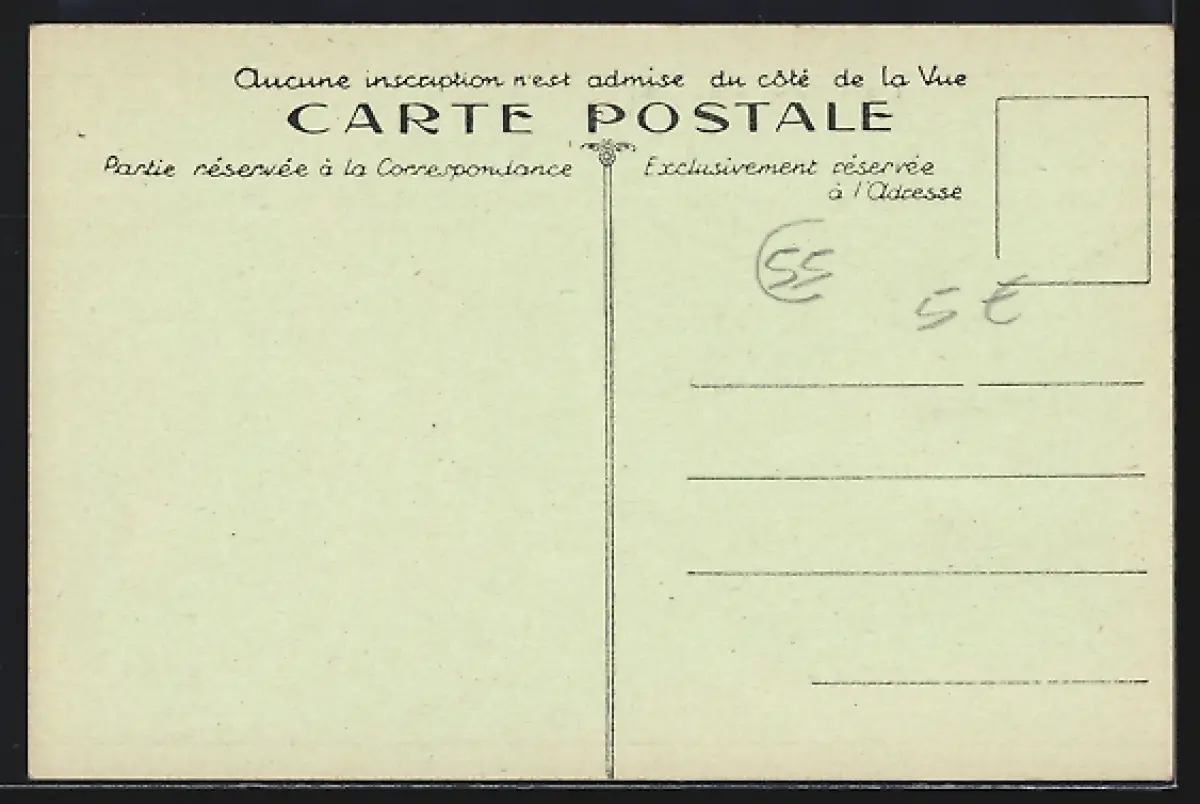 Aucune inscription n'est admise du côté de la Vue
CARTE POSTALE
Partie réservée à la Correspondance
Exclusivement réservée
à l'Adresse
55
5 €